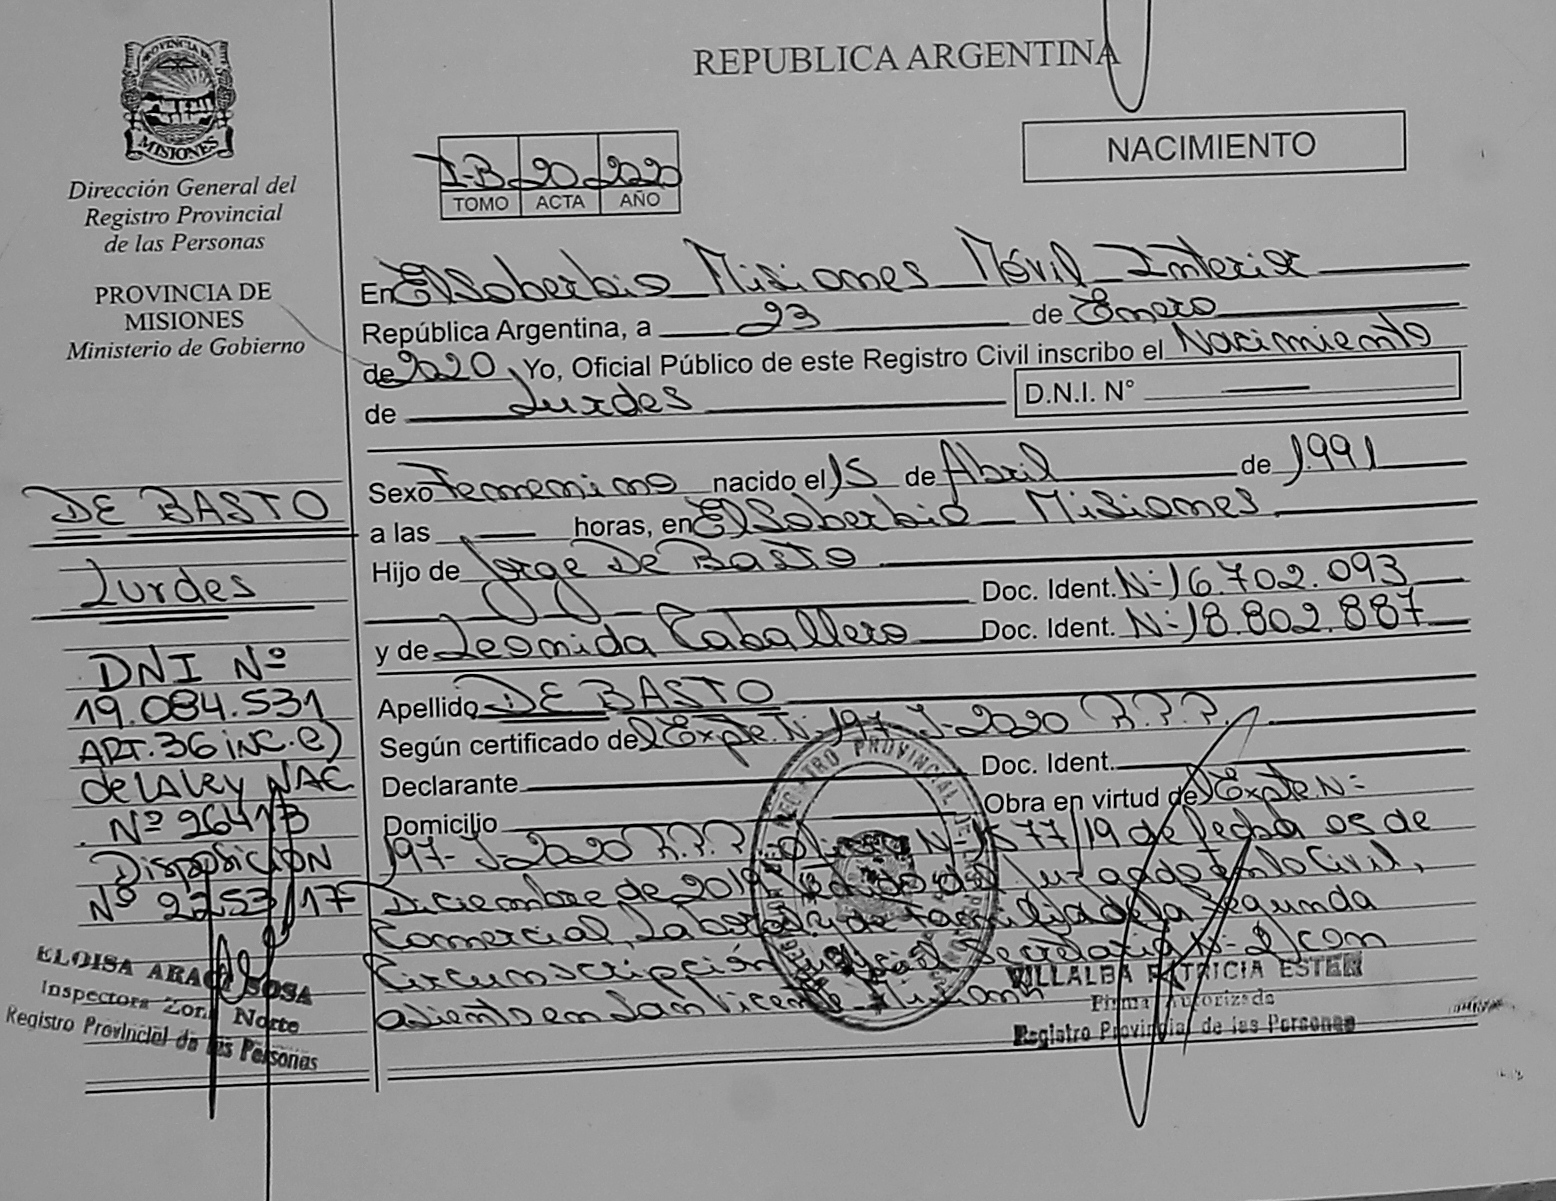 PROVINCIA DE
MISIONES
Dirección General del
Registro Provincial
de las Personas
PROVINCIA DE
MISIONES
Ministerio de Gobierno
REPUBLICA ARGENTINA
NACIMIENTO
I-B 20 2020
TOMO ACTA AÑO
En El Soberbio Misiones Móvil Interior
República Argentina, a 23 de Enero
de 2020 Yo, Oficial Público de este Registro Civil inscribo el Nacimiento
de Lurdes D.N.I. N°
Sexo Femenino nacido el 15 de Abril de 1991
a las horas, en El Soberbio Misiones
Hijo de Jorge De Basto
Doc. Ident. N:16.702.093
y de Leonida Caballero Doc. Ident. N:18.802.887
Apellido DE BASTO
Según certificado de Expte N:197-J-2020 R.P.P.
Declarante Doc. Ident.
Domicilio Obra en virtud de Expte N:
197-J-2020 R.P.P. N:1577/19 de fecha 05 de
Diciembre de 2019 Juzgado en lo Civil,
Comercial, Laboral y de Familia de la Segunda
Circunscripción Judicial Secretaria N:2, con
asiento en San Vicente Misiones
DE BASTO
Lurdes
DNI Nº
19.084.531
ART.36 inc.e)
de lA ley NAC
Nº 26413
Disposición
Nº 2253/17
ELOISA ARACI SOSA
Inspectora Zona Norte
Registro Provincial de las Personas
REGISTRO PROVINCIAL DE
VILLALBA PATRICIA ESTER
Firma Autorizada
Registro Provincial de las Personas